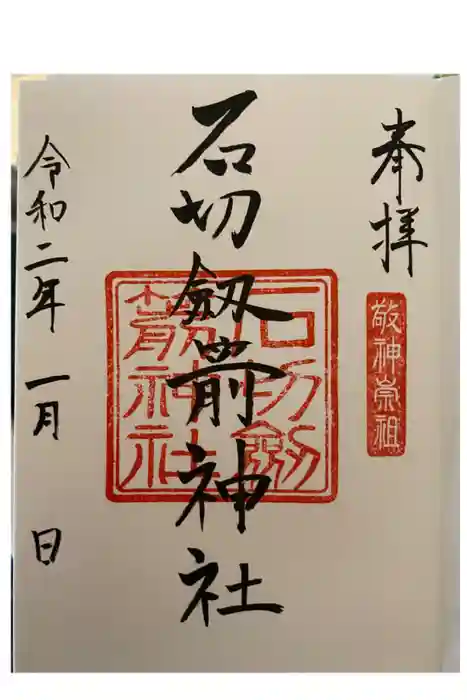 奉拝
敬神崇祖
石切劔箭神社
石切劔
箭神社
令和二年 一月 日